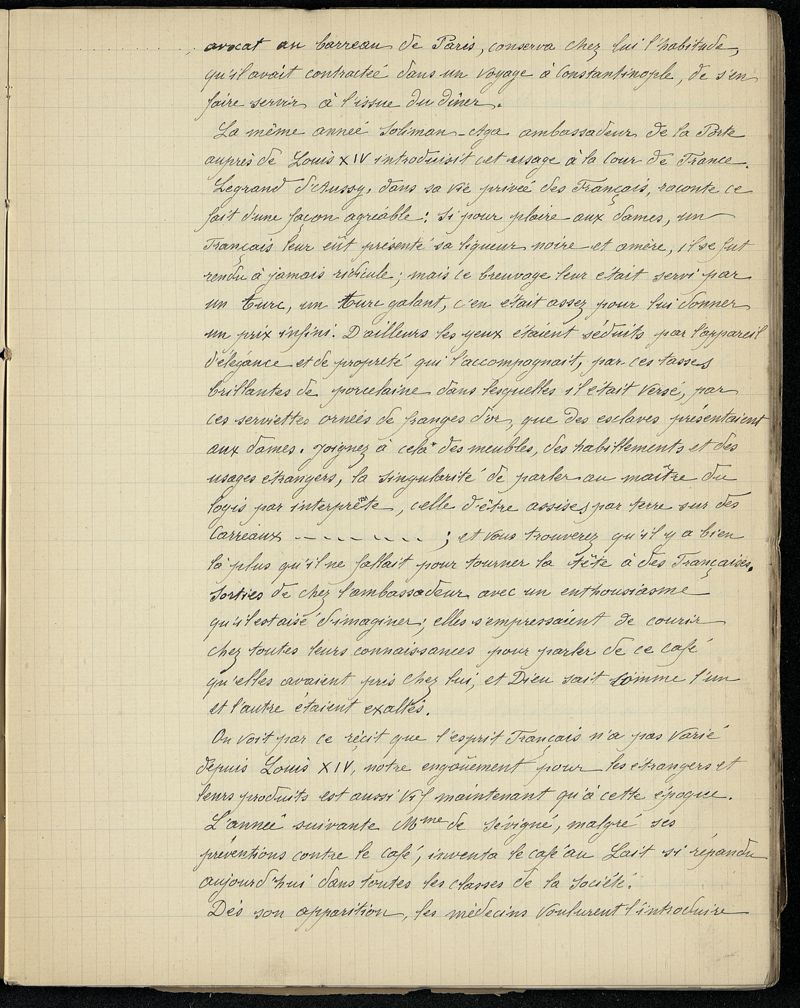 avocat au barreau de Paris, conserva chez lui l'habitude,
qu'il avait contractée dans un voyage à Constantinople, de s'en
faire servir à l'issue du dîner.
La même année Soliman-Aga ambassadeur de la Porte
auprès de Louis XIV introduisit cet usage à la Cour de France.
Legrand d'Aussy, dans sa vie privée des Français, raconte ce
fait d'une façon agréable: Si pour plaire aux dames, un
Français leur eût présenté sa liqueur noire et amère, il se fut
rendu à jamais ridicule; mais ce breuvage leur était servi par
un turc, un turc galant, c'en était assez pour lui donner
un prix infini. D'ailleurs les yeux étaient séduits par l'appareil
d'élégance et de propreté qui l'accompagnait, par ces tasses
brillantes de porcelaine dans lesquelles il était versé, par
ces serviettes ornées de franges d'or, que des esclaves présentaient
aux dames. Joignez à cela des meubles, des habillements et des
usages étrangers, la singularité de parler au maître du
logis par interprête, celle d'être assises par terre sur des
Carreaux - - - - - - - - ; et vous trouverez qu'il y a bien
là plus qu'il ne fallait pour tourner la tête à des Françaises.
Sorties de chez l'ambassadeur avec un enthousiasme
qu'il est aisé d'imaginer; elles s'empressaient de courir
chez toutes leurs connaissances pour parler de ce café
qu'elles avaient pris chez lui, et Dieu sait comme l'un
et l'autre étaient exaltés.
On voit par ce récit que l'esprit Français n'a pas varié
depuis Louis XIV, notre engoûement pour les étrangers et
leurs produits est aussi vif maintenant qu'à cette époque.
L'année suivante Mme de Sévigné, malgré ses
préventions contre le café, inventa le café au Lait si répandu
aujourd'hui dans toutes les classes de la Société.
Dès son apparition, les médecins voulurent l'introduire